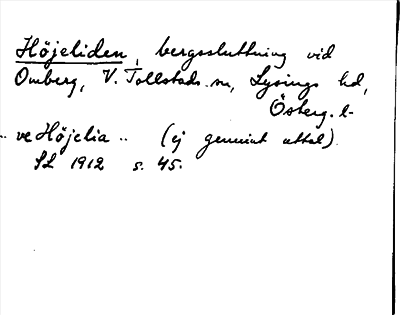 Höjeliden, bergssluttning vid
Omberg, V. Tollstads sn, Lysings hd,
Österg. l-
.. ve Höjelia .. (ej genuint uttal).
SL 1912 s. 45.